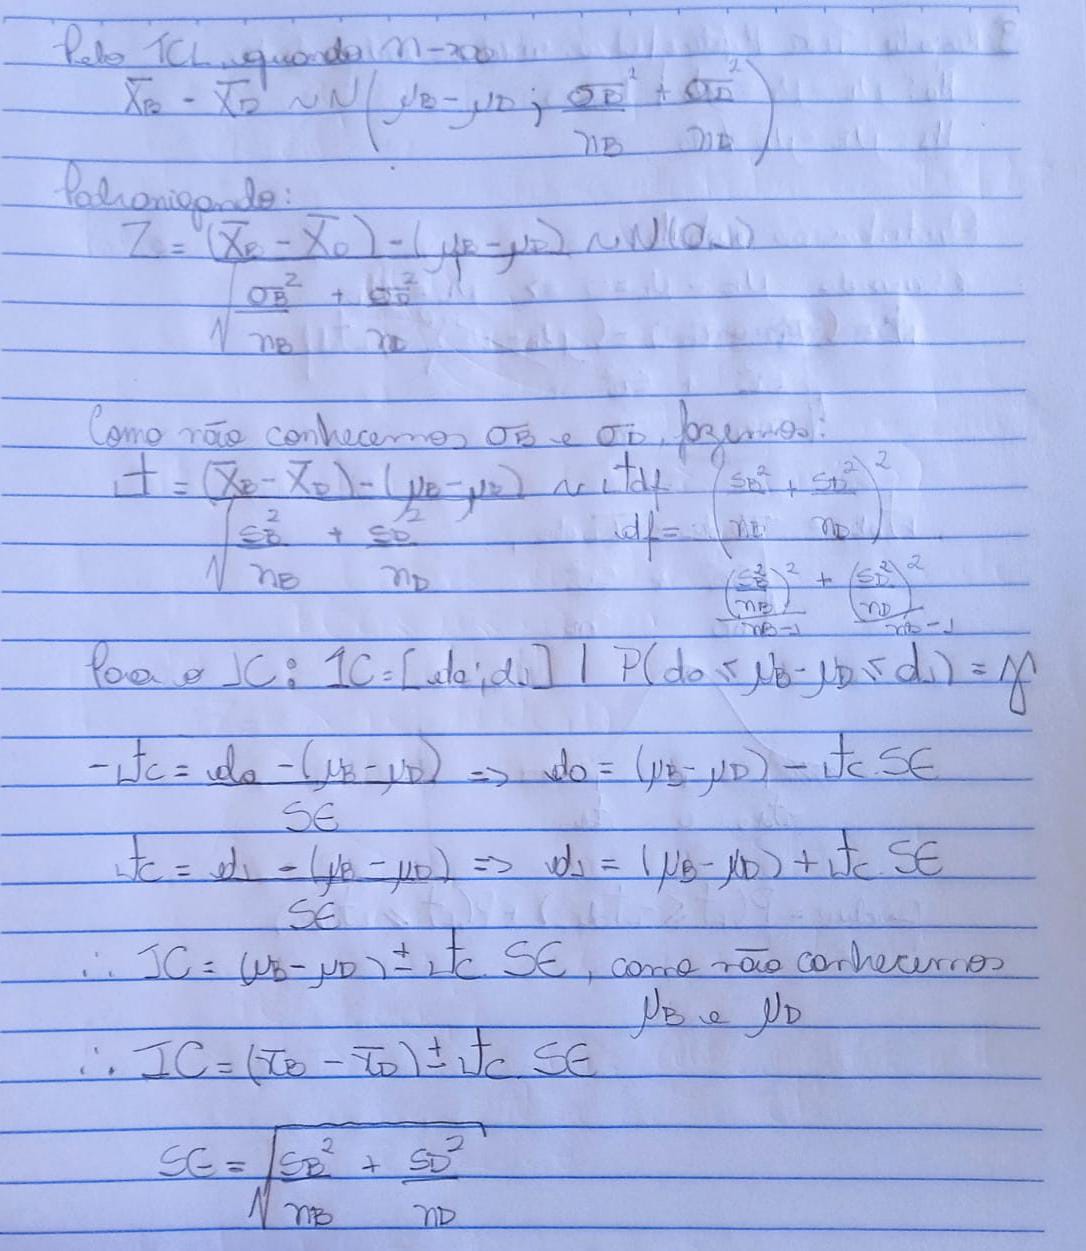 Pelo TCL, quando n→∞
X̄B - X̄D ~ N(μB-μD; σB²/nB + σD²/nD)
Padronizando:
Z = (X̄B - X̄D) - (μB-μD) / √(σB²/nB + σD²/nD) ~ N(0,1)
Como não conhecemos σB e σD, fazemos:
t = (X̄B - X̄D) - (μB-μD) / √(SB²/nB + SD²/nD) ~ tdf
df = (SB²/nB + SD²/nD)² / ((SB²/nB)²/nB-1 + (SD²/nD)²/nD-1)
Para o IC: IC=[d0;d1] | P(d0 ≤ μB-μD ≤ d1) = γ
-tc = d0 - (μB-μD) / SE => d0 = (μB-μD) - tc.SE
tc = d1 - (μB-μD) / SE => d1 = (μB-μD) + tc.SE
∴ IC = (μB-μD) ± tc SE, como não conhecemos
μB e μD
∴ IC = (x̄B - x̄D) ± tc SE
SE = √(SB²/nB + SD²/nD)